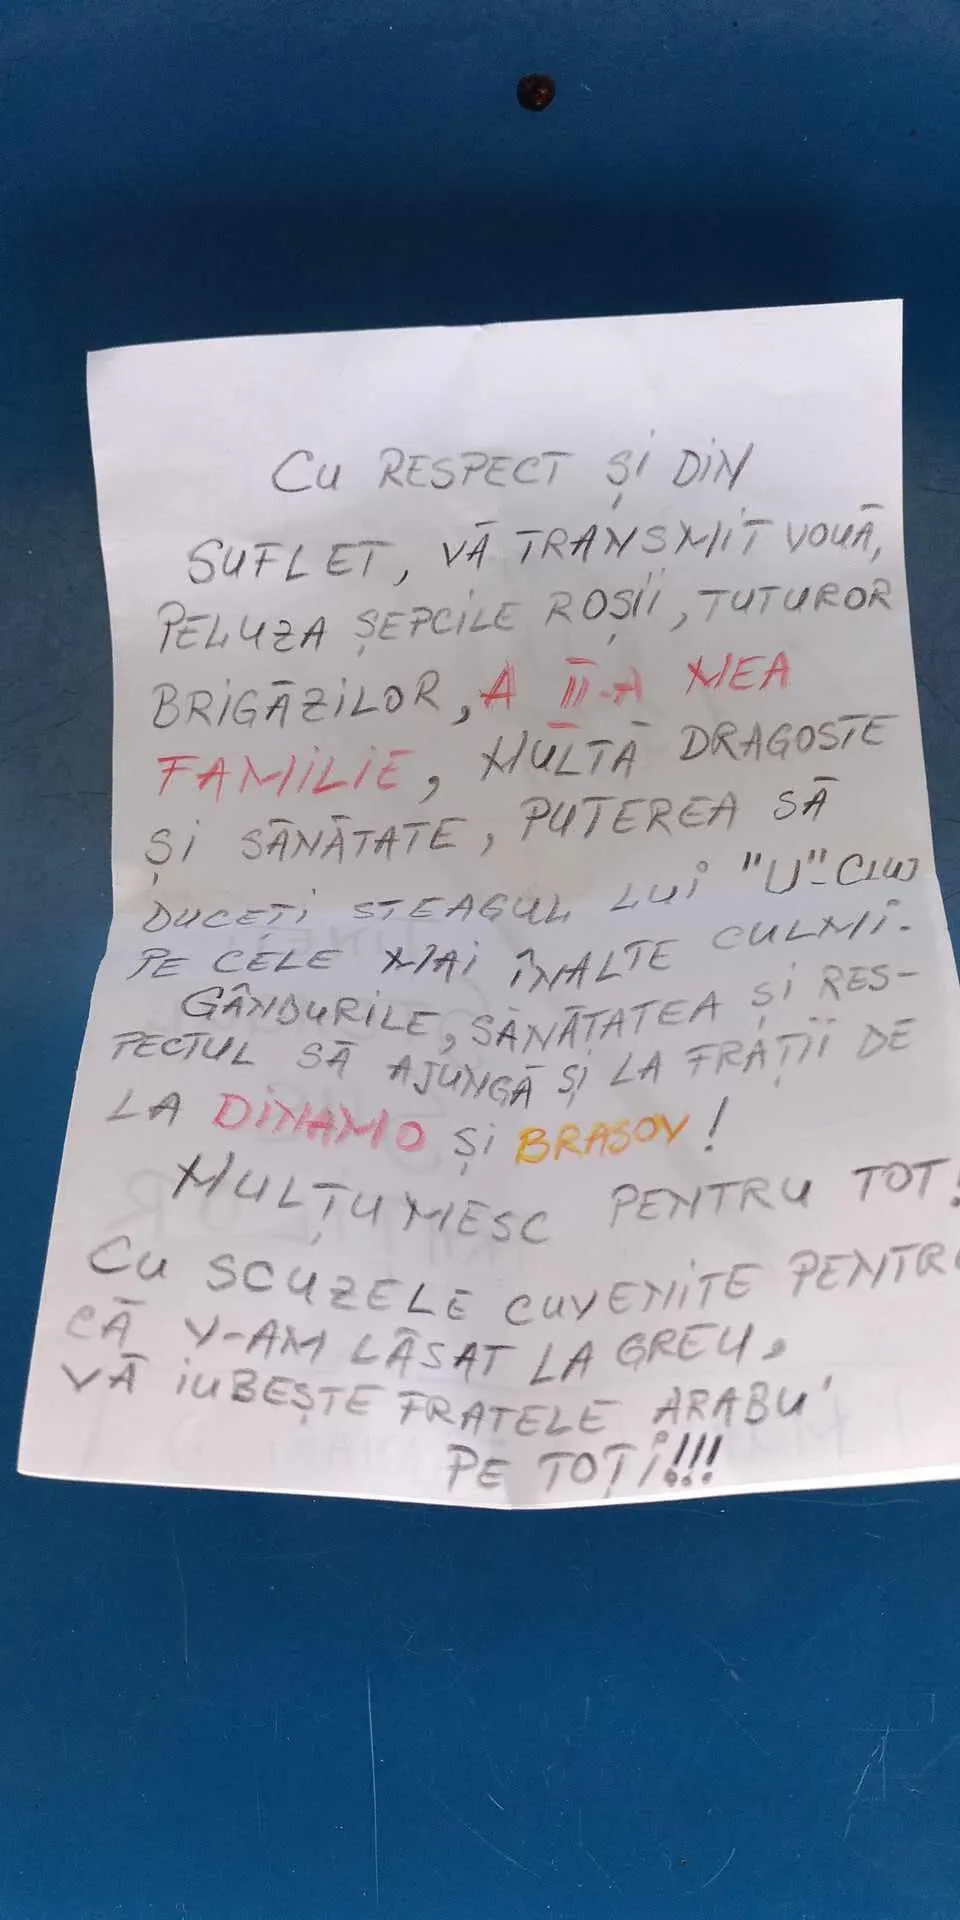 CU RESPECT ȘI DIN
SUFLET, VĂ TRANSMIT VOUĂ,
PELUZA ȘEPCILE ROȘII, TUTUROR
BRIGĂZILOR, A II-A MEA
FAMILIE, MULTĂ DRAGOSTE
ȘI SĂNĂTATE, PUTEREA SĂ
DUCEȚI STEAGUL LUI "U"-CLUJ
PE CELE MAI ÎNALTE CULMI.
GÂNDURILE, SĂNĂTATEA ȘI RES-
PECTUL SĂ AJUNGĂ ȘI LA FRAȚII DE
LA DINAMO ȘI BRASOV!
MULȚUMESC PENTRU TOT!
CU SCUZELE CUVENITE PENTRU
CĂ V-AM LĂSAT LA GREU,
VĂ IUBEȘTE FRATELE ARABU'
PE TOȚI!!!